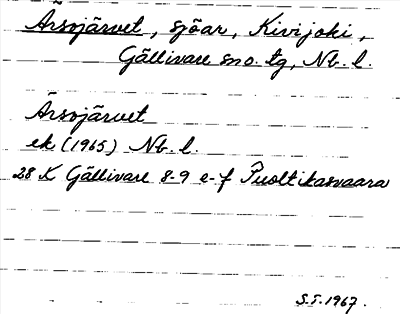 Ärsojärvet, sjöar, Kivijoki,
Gällivare sno. tg, Nb. l.
Ärsojärvet
ek (1965) Nb. l.
28 K Gällivare 8-9 e-f Puoltikasvaara
S.T. 1967.